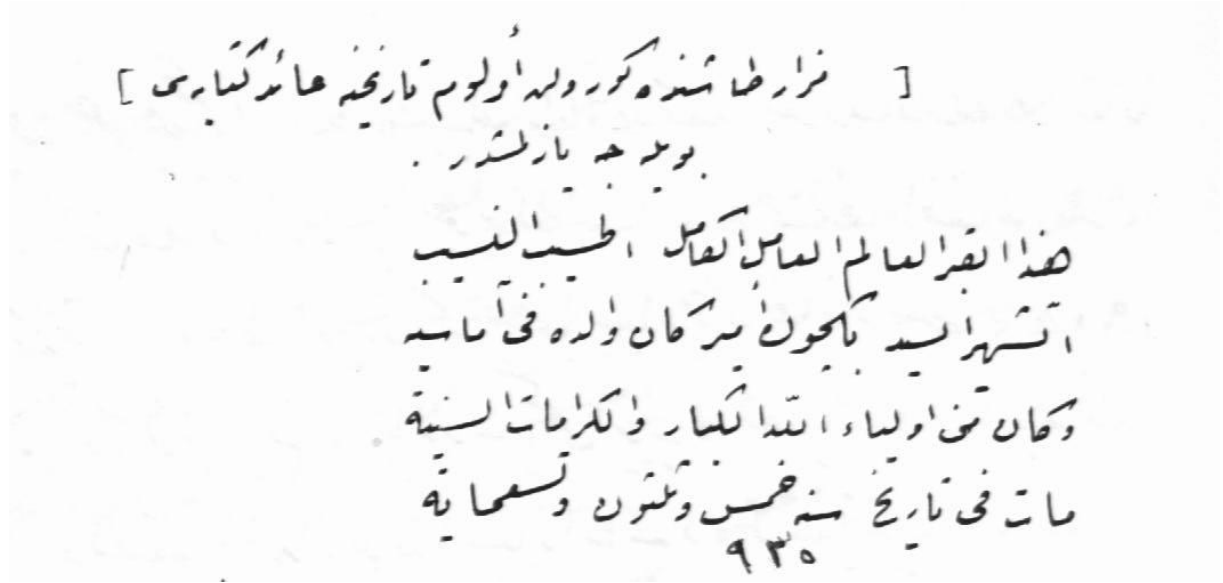 [ مزار طاشنده كورولن أولوم تاريخنه عائد كتابه سى ]
بويله جه يازلمشدر .
هذا القبر العالم العامل الكامل الحسيب النسيب
الشهر السيد امير كان والده فى آماسيه
وكان من اولياء الله الكبار والكرامات السنية
مات فى تاريخ سنه خمس وثلثون وتسعمایة
٩٣٥